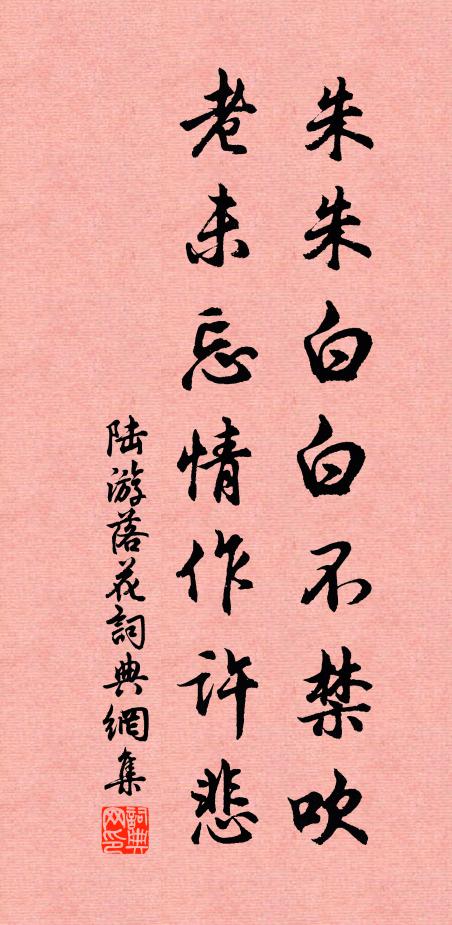 朱朱白白不禁吹
老未忘情作许悲
陆游落花詞典網集
詞典网印